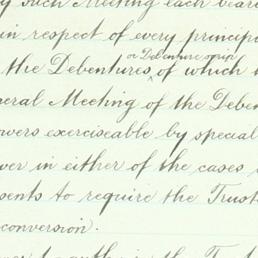 such Meeting each
in respect of every princip
or Debenture scrip
the Debentures, of which
eral Meeting of the Deben
owers exerciseable by special
ver in either of the cases
sents to require the Trust
conversion.